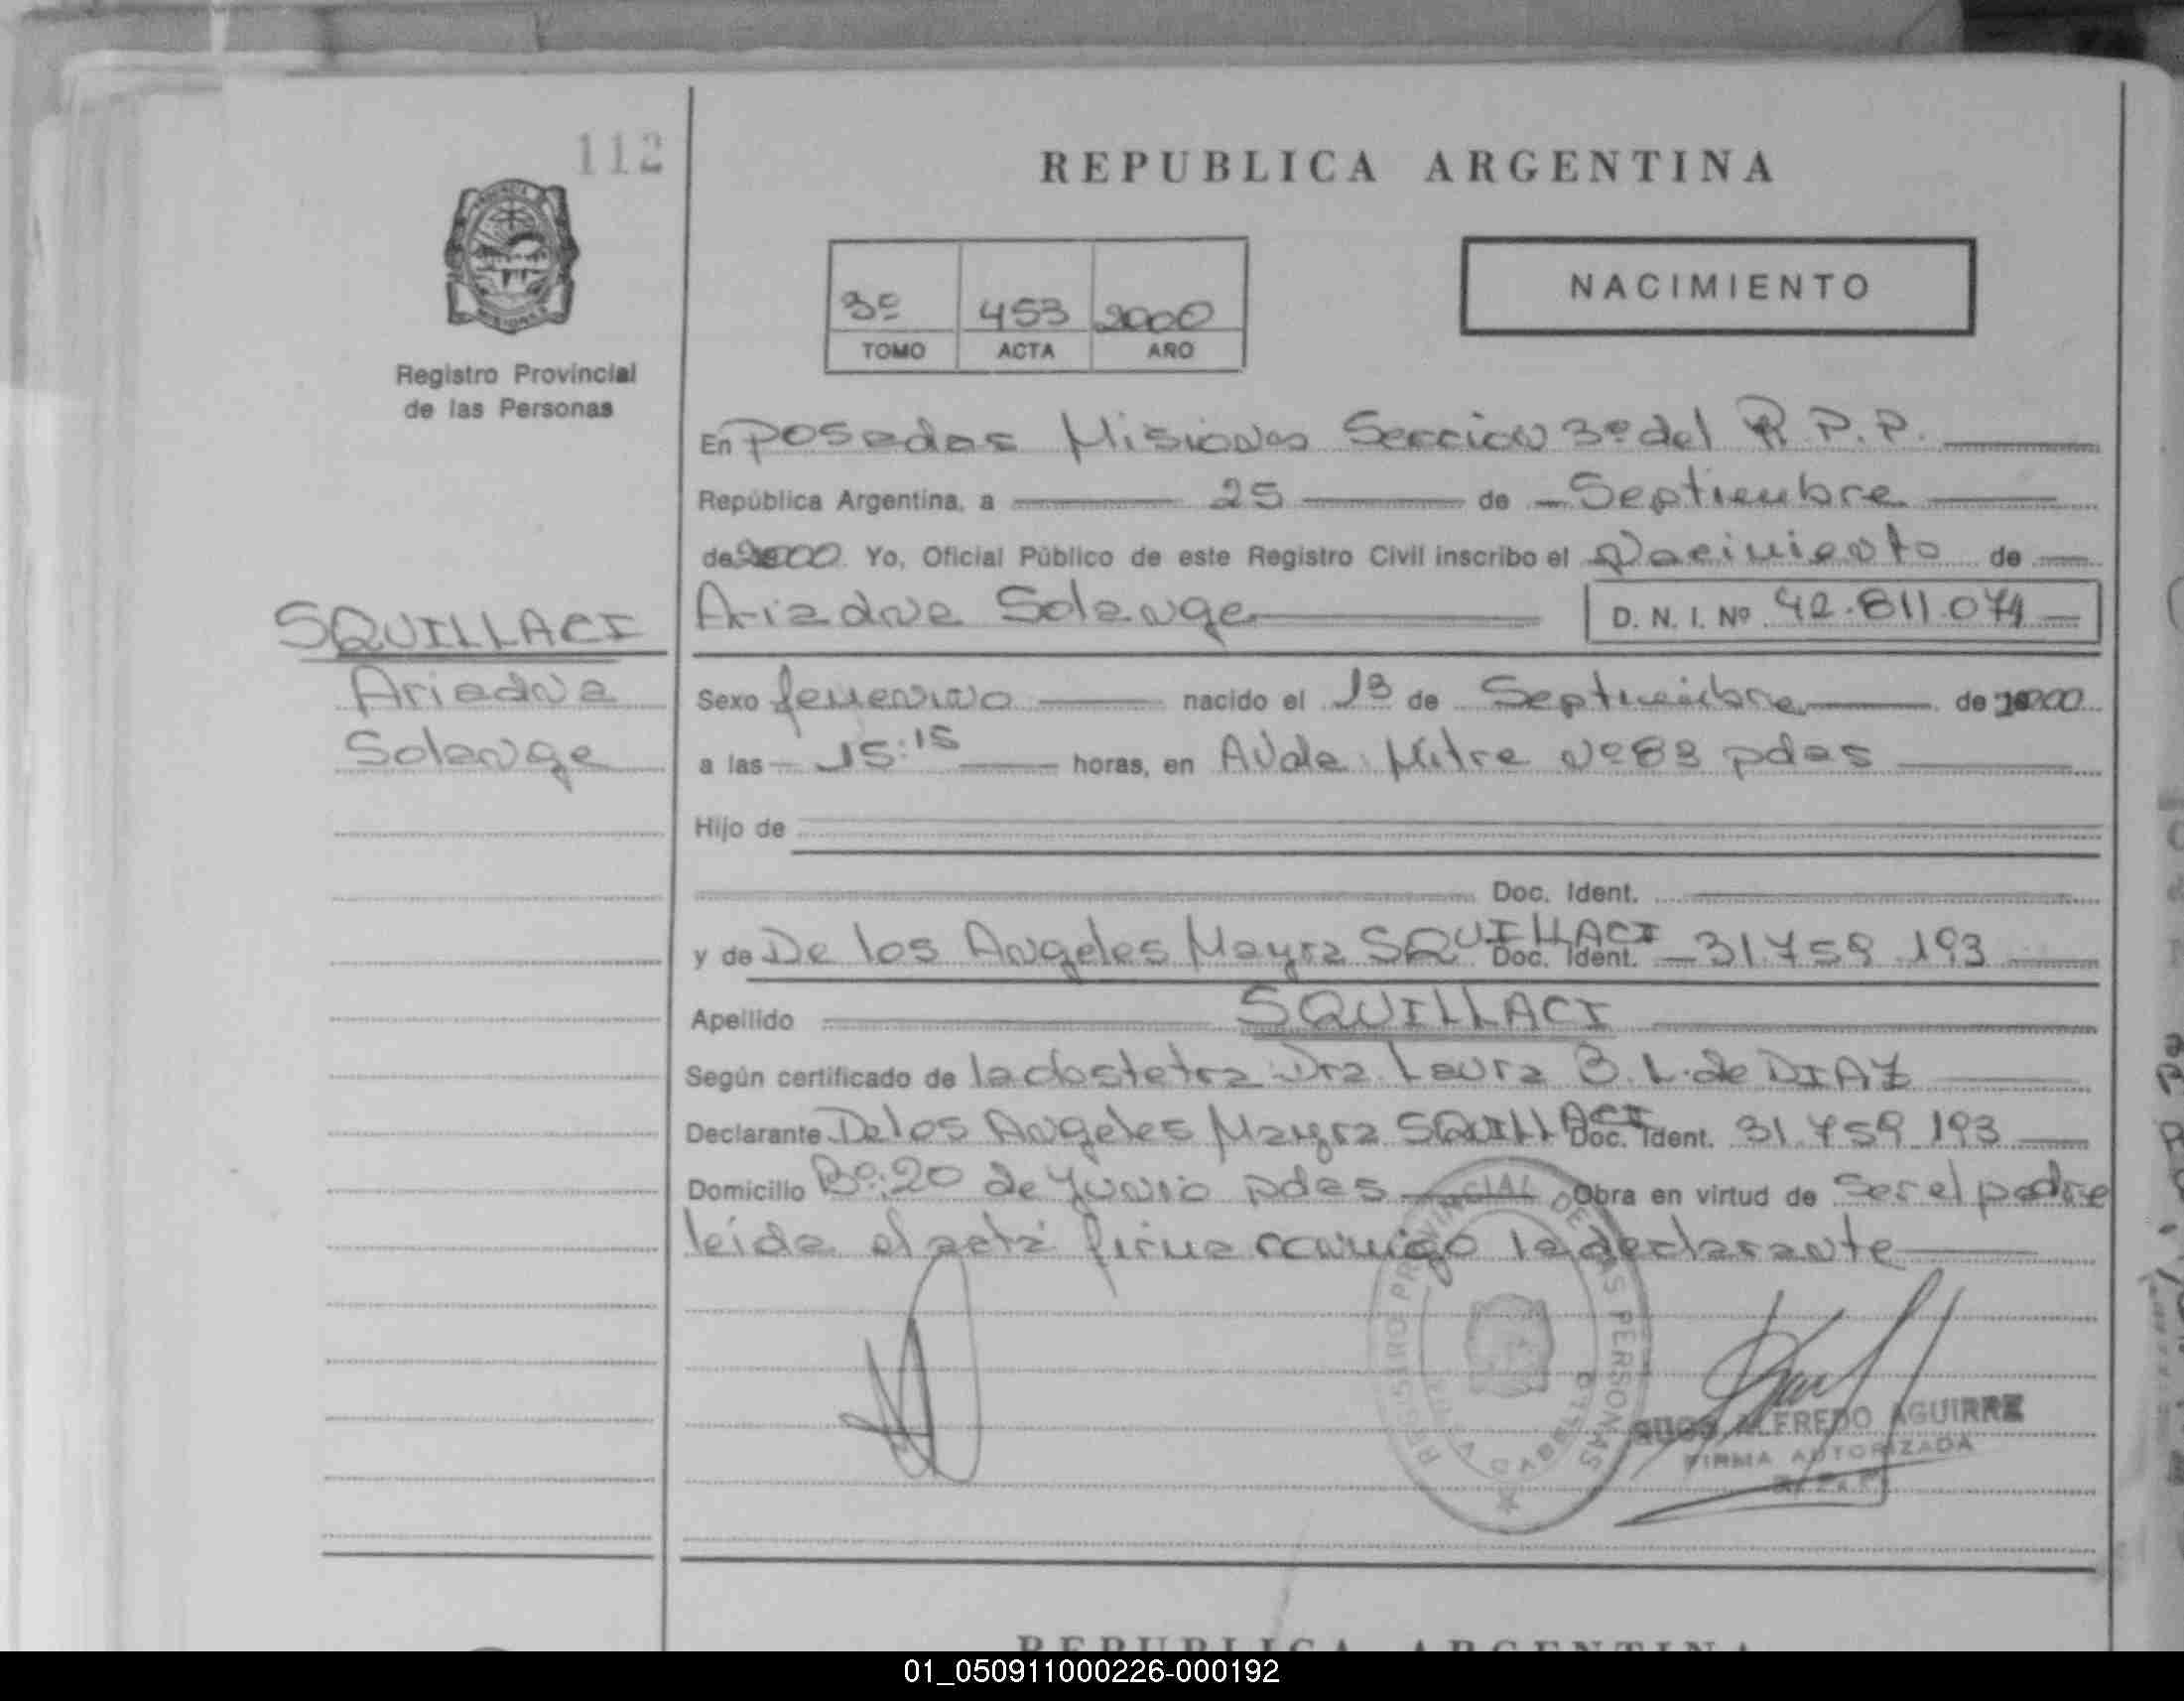 112
REPUBLICA ARGENTINA
3º 453 2000
TOMO ACTA AÑO
NACIMIENTO
Registro Provincial
de las Personas
En Posadas Misiones Seccion 3º del R.P.P.
República Argentina, a 25 de Septiembre
de 2000 Yo, Oficial Público de este Registro Civil inscribo el Nacimiento de
SQUILLACI
Ariadna
Solange
Ariadna Solange D. N. I. Nº 42.811.074
Sexo femenino nacido el 13 de Septiembre de 2000
a las 15:15 horas, en Avda. Mitre Nº 83 pdas
Hijo de
Doc. Ident.
y de De los Angeles Mayra SQUILLACI Doc. Ident. 31.759.193
Apellido SQUILLACI
Según certificado de la obstetra Dra. Laura B. L. de DIAZ
Declarante De los Angeles Mayra SQUILLACI Doc. Ident. 31.759.193
Domicilio Bº: 20 de Junio pdas Obra en virtud de Ser el padre
leida el acta firma conmigo la declarante
REGISTRO PROVINCIAL DE LAS PERSONAS
ALFREDO AGUIRRE
FIRMA AUTORIZADA
REPUBLICA ARGENTINA
01_050911000226-000192